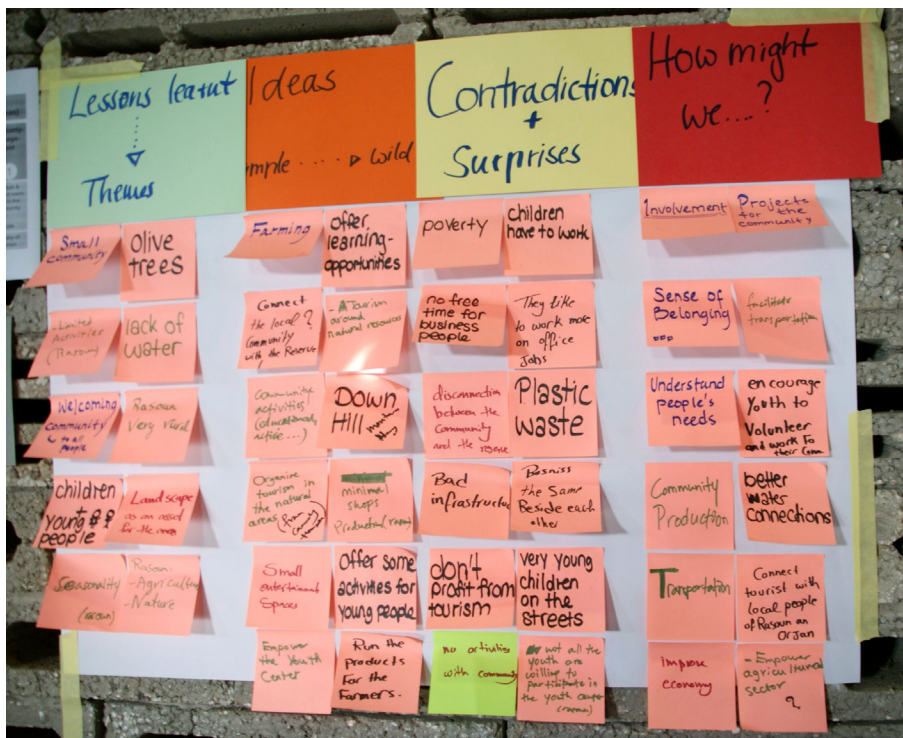 Lessons learnt
Themes
Ideas
mple .... Wild
Contradictions
+
Surprises
How might
we....?
Small
community
Olive
trees
-Limited
Activities
(Rasoun)
lack of
water
Welcoming
community
to all
people
Rasoun
Very rural
children
+
young
people
Landscape
as an asset
for the area
Seasonality
(rasoun)
Rasoun:
-Agriculture
-Nature
Farming
Offer
learning-
opportunities
Connect
the local ?
Community
with the Reserve
-A Tourism
around
natural resources
Community
activities
(educational,
active ...)
Down
Hill
Organize
tourism in
the natural
areas
minimal
shops
Production (rasoun)
Small
entertainment
Spaces
Offer some
activities for
young people
Empower
the Youth
Center
Run the
Products
For the
Farmers.
poverty
children
have to work
no free
time for
business
people
They like
to work more
on office
Jobs
disconnection
between the
Community
and the reserve
Plastic
waste
Bad
infrastructur
Busniss
the Same
Beside each
other
don't
profit from
tourism
very young
children
on the
streets
no activities
with community
not all the
youth are
willing to
participate in
the youth center
Involvement
Projects
for the
community
Sense of
Belonging
...
facilitate
transportation
Understand
people's
needs
encourage
Youth to
Volunteer
and work To
their Com
Community
Production
better
water
connections
Transportation
Connect
tourist with
local people
of Rasoun an
Orjan
improve
economy
- Empower
agricultural
sector
?